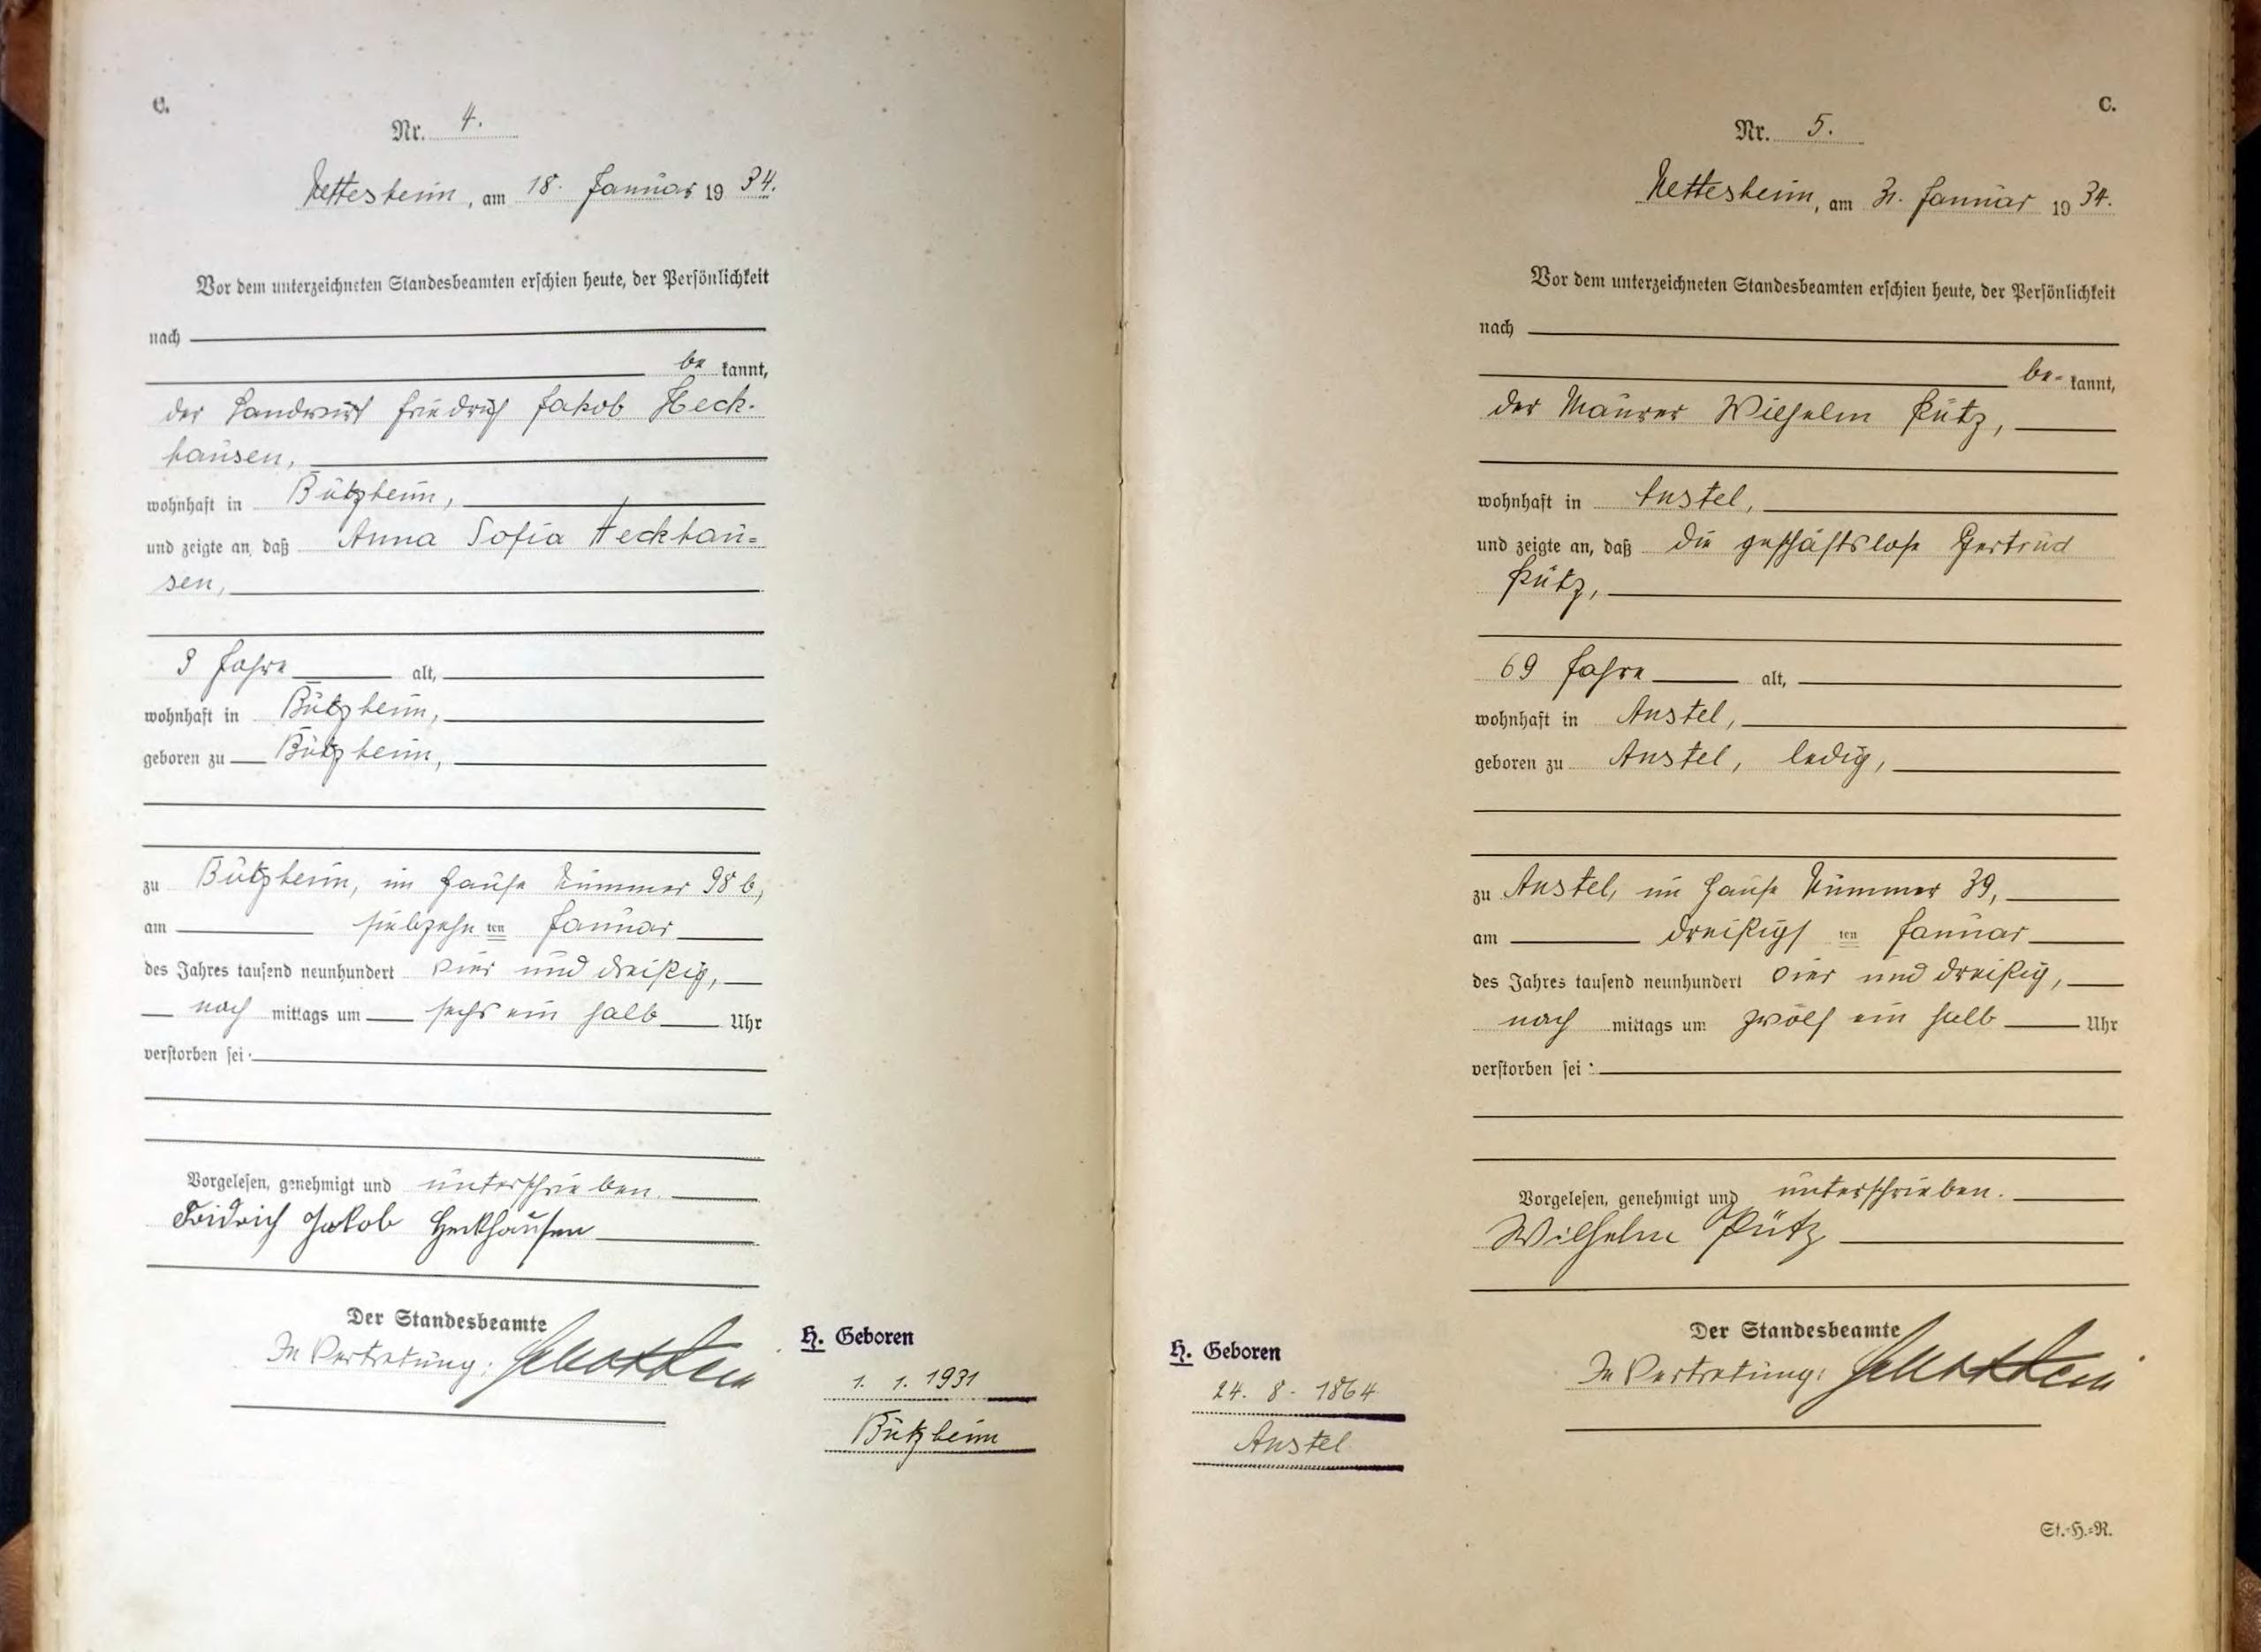 C.
Nr. 4.
Nettesheim, am 18. Januar 1934.
Vor dem unterzeichneten Standesbeamten erschien heute, der Persönlichkeit
nach
be kannt,
der Landwirt Friedrich Jakob Heck-
hausen,
wohnhaft in Bützheim,
und zeigte an, daß Anna Sofia Heckhau=
sen,
3 Jahre alt,
wohnhaft in Bützheim,
geboren zu Bützheim,
zu Bützheim, im Hause Nummer 98 b,
am siebzehn ten Januar
des Jahres tausend neunhundert vier und dreißig,
nach mittags um sechs ein halb Uhr
verstorben sei.
Vorgelesen, genehmigt und unterschrieben.
Fridrich Jakob Heckhausen
Der Standesbeamte
In Vertretung:
H. Geboren
1. 1. 1931
Bützheim
C.
Nr. 5.
Nettesheim, am 31. Januar 1934.
Vor dem unterzeichneten Standesbeamten erschien heute, der Persönlichkeit
nach
be- kannt,
der Maurer Wilhelm Pütz,
wohnhaft in Anstel,
und zeigte an, daß die geschäftslose Gertrud
Pütz,
69 Jahre alt,
wohnhaft in Anstel,
geboren zu Anstel, ledig,
zu Anstel, im Hause Nummer 39,
am dreißigs ten Januar
des Jahres tausend neunhundert vier und dreißig,
nach mittags um zwölf ein halb Uhr
verstorben sei:
Vorgelesen, genehmigt und unterschrieben.
Wilhelm Pütz
Der Standesbeamte
In Vertretung:
H. Geboren
24. 8. 1864
Anstel
St.=H.=R.